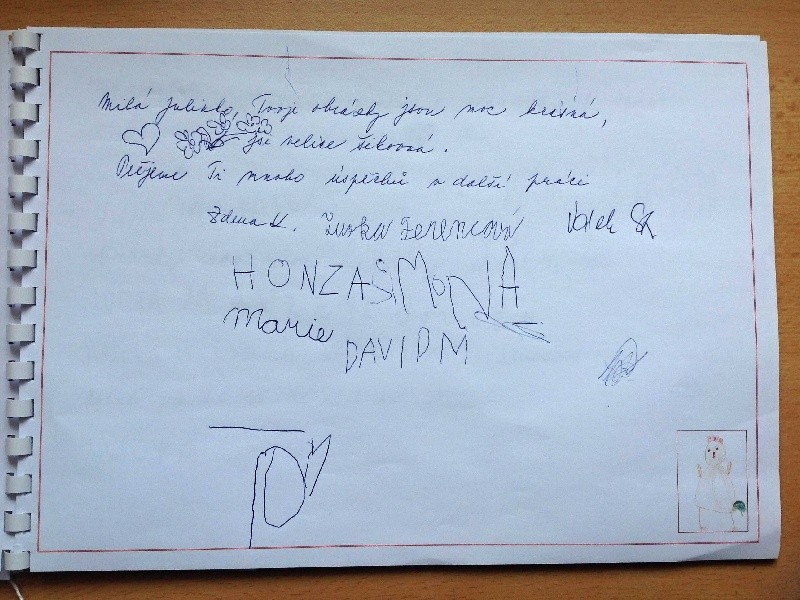 Milá Julinko, Tvoje obrázky jsou moc krásná,
jsi velice šikovná.
Přejeme Ti mnoho úspěchů v další práci
Zdena K. Zuzka Ferencová
HONZA ŠIMONA
Marie
DAVID M